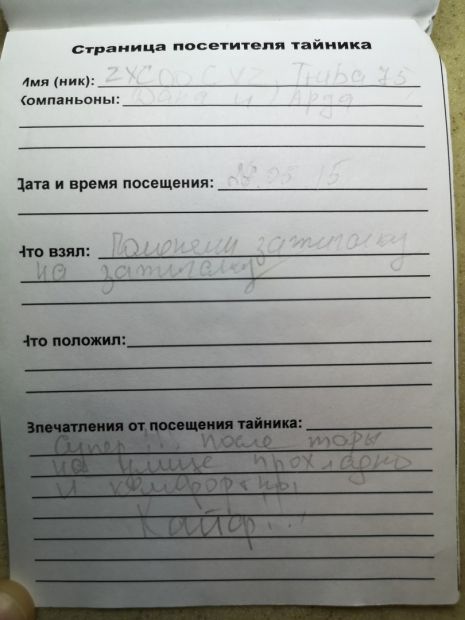 Страница посетителя тайника
Имя (ник): ZXCOOCXZ, Truba75
Компаньоны: Дана и Арда
Дата и время посещения: 28.05.15
Что взял: Поменяли зажигалку
на зажигалку
Что положил:
Впечатления от посещения тайника:
Супер!!! после жары
на улице прохладно
и комфортны
Кайф!!!